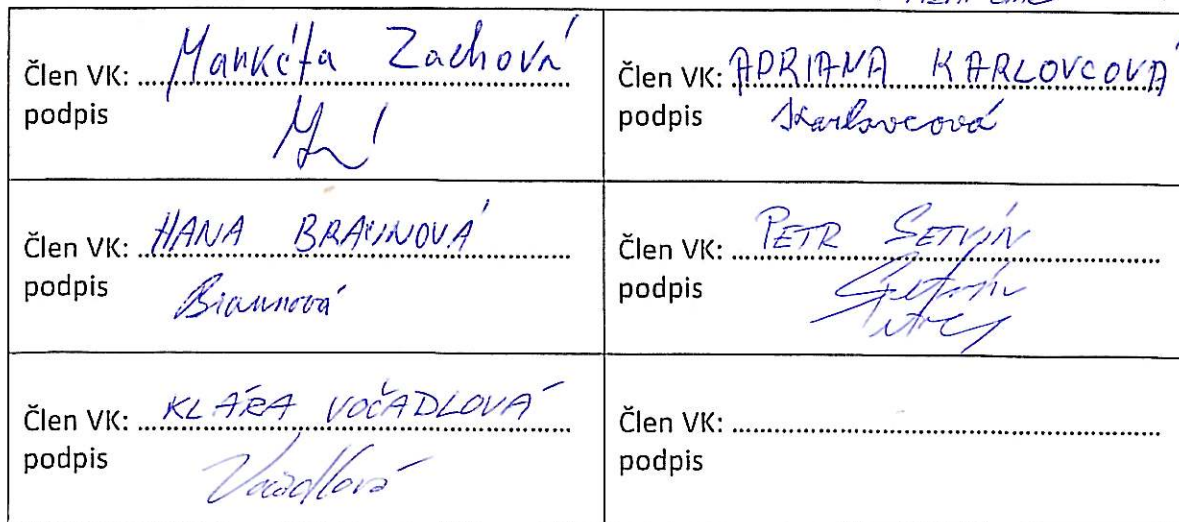 Člen VK: Markéta Zachová
podpis
Člen VK: ADRIANA KARLOVCOVÁ
podpis Karlovcová
Člen VK: HANA BRAUNOVÁ
podpis Braunová
Člen VK: PETR SETVÍN
podpis
Člen VK: KLÁRA VOČADLOVÁ
podpis Vočadlová
Člen VK:
podpis